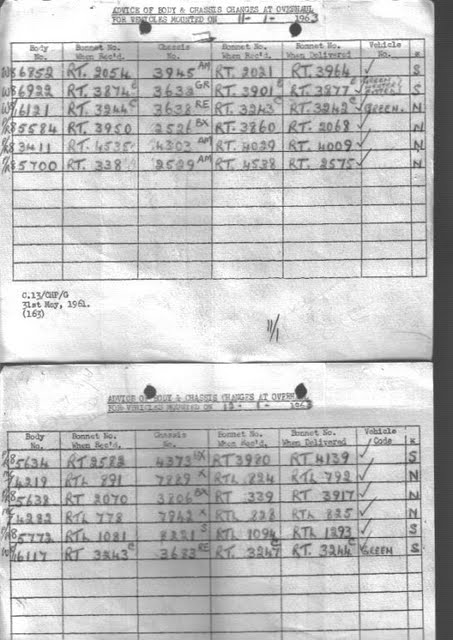 ADVICE OF BODY & CHASSIS CHANGES AT OVERHAUL
FOR VEHICLES MOUNTED ON 11 - 1 - 1963
Body No. Bonnet No. When Rec'd. Chassis No. Bonnet No. When Rec'd. Bonnet No. When Delivered Vehicle No.
6852 RT. 2054 3945 AM RT. 2021 RT. 3964 ✓ S
6922 RT. 3874 C 3632 GR RT. 3901 C RT. 3877 C ✓ GREEN S
6121 RT. 3244 C 3638 RE RT. 3243 C RT. 3242 C ✓ GREEN. N
5584 RT. 3950 2526 BX RT. 3860 RT. 2068 ✓ N
3411 RT. 4535 4303 AM RT. 4029 RT. 4009 ✓ N
5700 RT. 338 2529 AM RT. 4538 RT. 2575 ✓ N
C.13/CHF/G
31st May, 1961.
(163)
11/1
ADVICE OF BODY & CHASSIS CHANGES AT OVERHAUL
FOR VEHICLES MOUNTED ON 1963
Body No. Bonnet No. When Rec'd. Chassis No. Bonnet No. When Rec'd. Bonnet No. When Delivered Vehicle Code
5634 RT 2582 4373 BX RT 3980 RT 4139 ✓ S
4219 RTL 891 7889 X RTL 824 RTL 792 ✓ N
5638 RT 2070 3806 BX RT 339 RT. 3917 ✓ N
4282 RTL 778 7942 X RTL 828 RTL 825 ✓ N
5773 RTL 1081 8221 S RTL 1094 RTL 1293 ✓ S
6117 RT 3243 C 3683 RE RT. 3247 C RT. 3244 C ✓ GREEN S